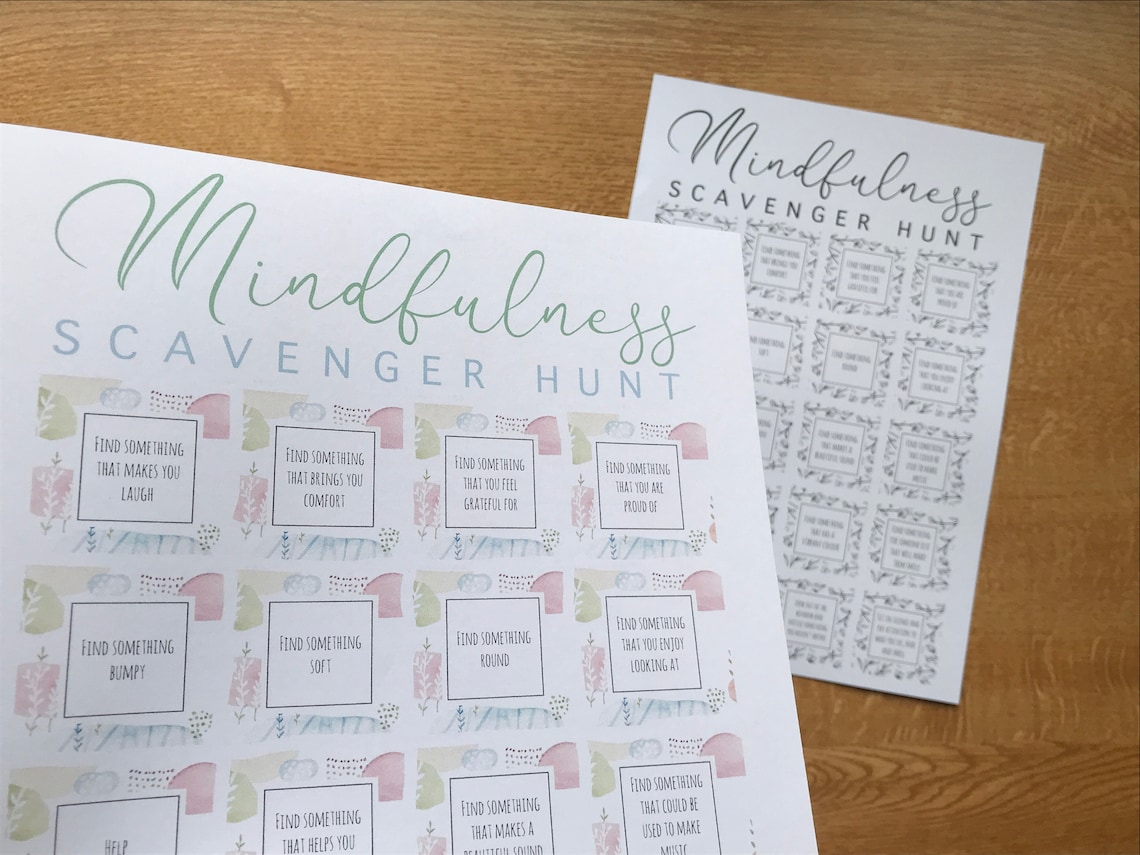 Mindfulness
SCAVENGER HUNT
FIND SOMETHING
THAT MAKES YOU
LAUGH
FIND SOMETHING
THAT BRINGS YOU
COMFORT
FIND SOMETHING
THAT YOU FEEL
GRATEFUL FOR
FIND SOMETHING
THAT YOU ARE
PROUD OF
FIND SOMETHING
BUMPY
FIND SOMETHING
SOFT
FIND SOMETHING
ROUND
FIND SOMETHING
THAT YOU ENJOY
LOOKING AT
HELP
FIND SOMETHING
THAT HELPS YOU
FIND SOMETHING
THAT MAKES A
BEAUTIFUL SOUND
FIND SOMETHING
THAT COULD BE
USED TO MAKE
MUSIC
Mindfulness
SCAVENGER HUNT
FIND SOMETHING
THAT BRINGS YOU
COMFORT
FIND SOMETHING
THAT YOU FEEL
GRATEFUL FOR
FIND SOMETHING
THAT YOU ARE
PROUD OF
SOFT
FIND SOMETHING
ROUND
FIND SOMETHING
THAT YOU ENJOY
LOOKING AT
FIND SOMETHING
THAT MAKES A
BEAUTIFUL SOUND
FIND SOMETHING
THAT COULD BE
USED TO MAKE
MUSIC
FIND SOMETHING
THAT HAS A
VIBRANT COLOUR
FIND SOMETHING
FOR SOMEONE ELSE
THAT WILL MAKE
THEM SMILE